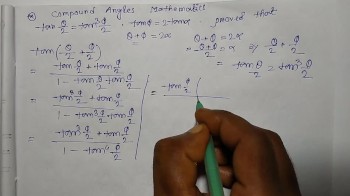 Compound Angles Mathematics
tan θ/2 = tan³ φ/2 · tan φ = 2 tan α · proved that
θ + φ = 2α
θ + φ = 2α
(θ + φ)/2 = α or, θ/2 + φ/2
tan (θ/2 + φ/2)
= (tan θ/2 + tan φ/2) / (1 - tan θ/2 tan φ/2)
= (tan³ φ/2 + tan φ/2) / (1 - tan³ φ/2 · tan φ/2)
= (tan³ φ/2 + tan φ/2) / (1 - tan⁴ φ/2)
tan θ/2 = tan³ φ/2
= tan φ/2 (